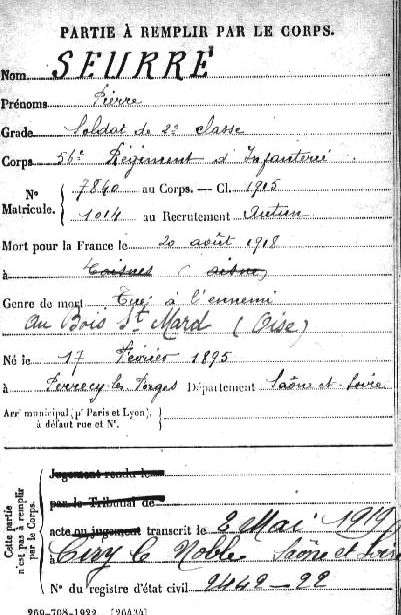 PARTIE À REMPLIR PAR LE CORPS.
Nom SEURRE
Prénoms Pierre
Grade Soldat de 2e classe
Corps 56e Régiment d'Infanterie
N° Matricule. { 7840 au Corps. — Cl. 1915
1014 au Recrutement Autun
Mort pour la France le 20 août 1918
à (Aisne)
Genre de mort Tué à l'ennemi
Au Bois St Mard (Oise)
Né le 17 Février 1895
à Perrecy les Forges Département Saône-et-Loire
Arrt municipal (pr Paris et Lyon), }
à défaut rue et N°.
Cette partie n'est pas à remplir par le Corps.
Jugement rendu le
par le Tribunal de
acte ou jugement transcrit le 2 Mai 1919
à Ciry le Noble Saône et Loire
N° du registre d'état civil 9442-22
269-708-1922. [26434]